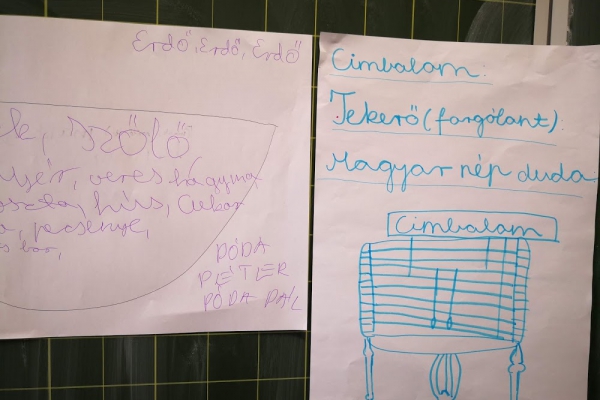 Erdő, Erdő, Erdő
k, Szőlő
veres hagyma
hús, Cukor
pecsenye,
bor,
PÓDA
PÉTER
PÓDA PÁL
Cimbalom:
Tekerő (forgólant):
Magyar nép duda
Cimbalom